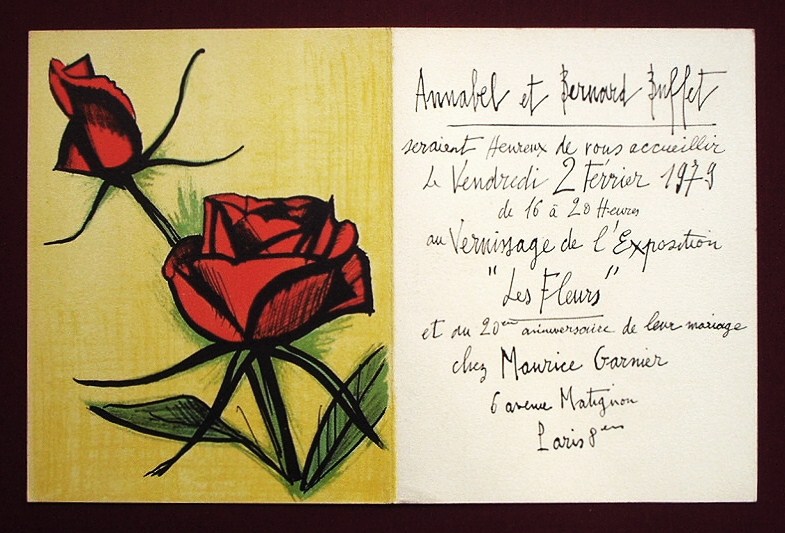 Annabel et Bernard Buffet
seraient Heureux de vous accueillir
le Vendredi 2 Février 1979
de 16 à 20 Heures
au Vernissage de l'Exposition
"Les Fleurs"
et au 20em anniversaire de leur mariage
chez Maurice Garnier
6 avenue Matignon
Paris 8em